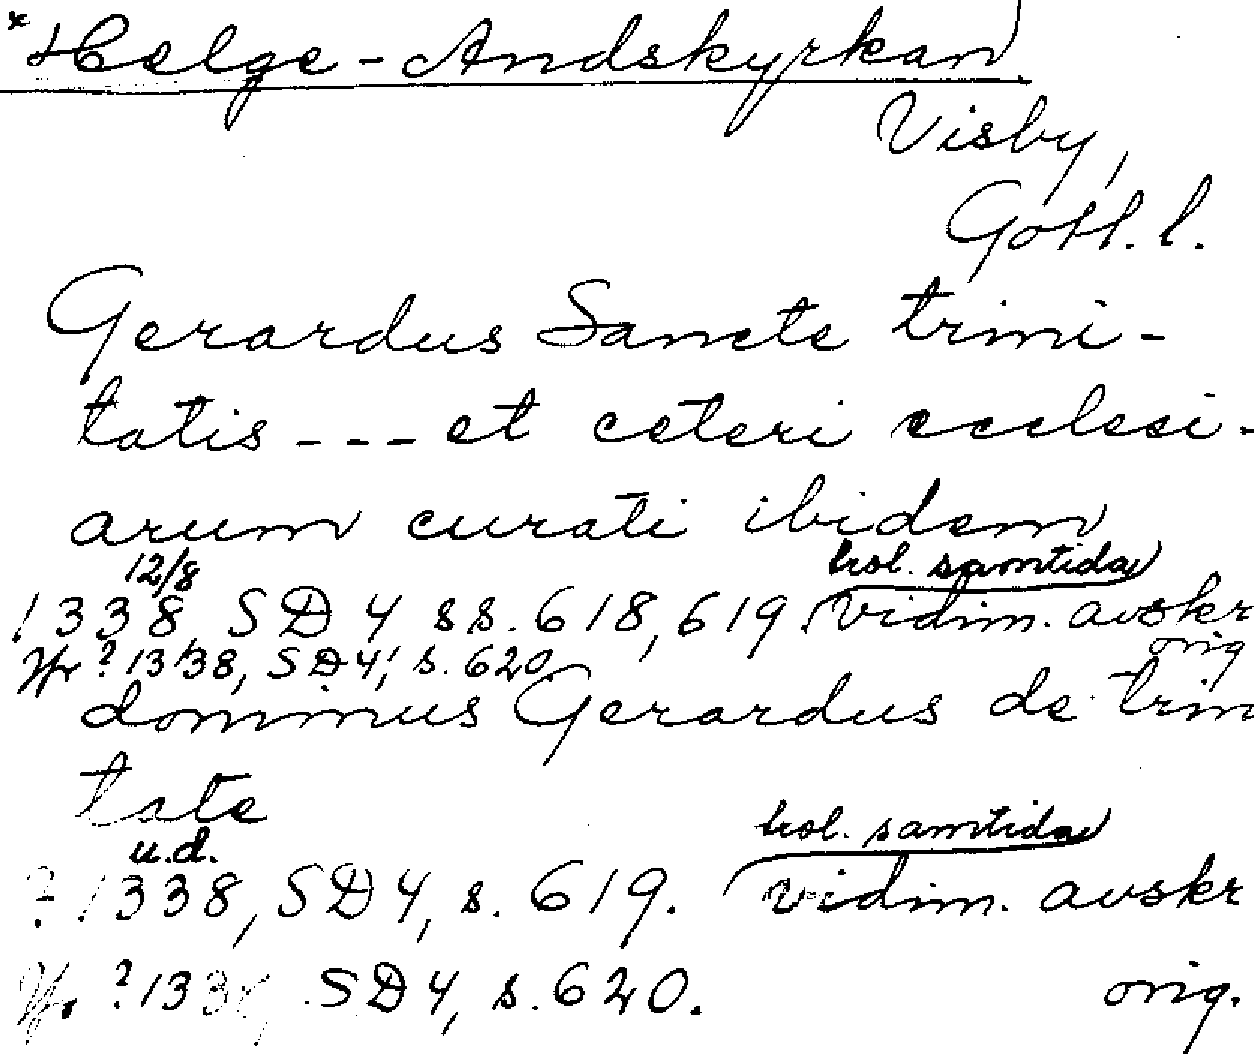 *Helge-Andskyrkan
Visby,
Gotl. l.
Gerardus Sancte trini-
tatis --- et ceteri ecclesi-
arum curati ibidem
12/8 kol. samtida
1338, SD 4 ss. 618, 619 vidim. avskr
?1338, SD4, s. 620 orig
dominus Gerardus de trini
tate
u.d. kol. samtida
? 1338, SD4, s. 619. vidim. avskr
?1338, SD4, s. 620. orig.